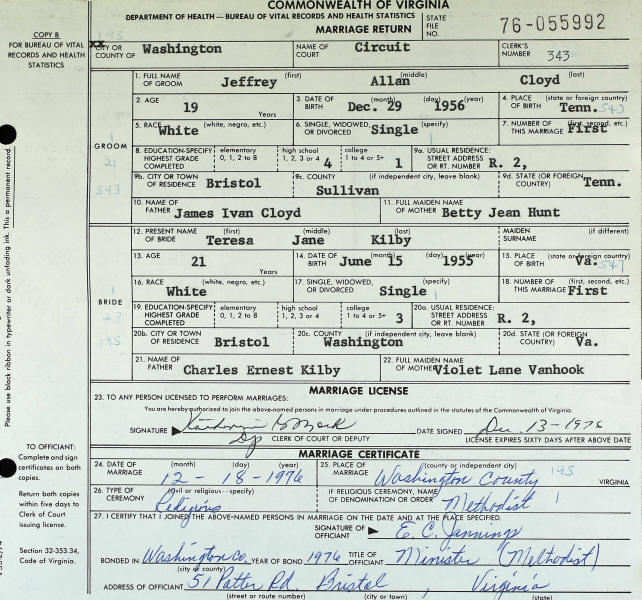 COMMONWEALTH OF VIRGINIA
DEPARTMENT OF HEALTH — BUREAU OF VITAL RECORDS AND HEALTH STATISTICS
MARRIAGE RETURN
STATE FILE NO. 76-055992
COPY B
FOR BUREAU OF VITAL RECORDS AND HEALTH STATISTICS
195
XX CITY OR COUNTY OF Washington NAME OF COURT Circuit CLERK'S NUMBER 343
1. FULL NAME OF GROOM (first) Jeffrey (middle) Allan (last) Cloyd
2. AGE 19 Years 3. DATE OF BIRTH (month) (day) (year) Dec. 29 1956 4. PLACE OF BIRTH (state or foreign country) Tenn. 543
5. RACE (white, negro, etc.) White 6. SINGLE, WIDOWED, OR DIVORCED (specify) Single 7. NUMBER OF THIS MARRIAGE (first, second, etc.) First
GROOM
1
21
543
8. EDUCATION-SPECIFY HIGHEST GRADE COMPLETED elementary 0, 1, 2 to 8 high school 1, 2, 3 or 4 4 college 1 to 4 or 5+ 1 9a. USUAL RESIDENCE: STREET ADDRESS OR RT. NUMBER R. 2,
9b. CITY OR TOWN OF RESIDENCE Bristol 9c. COUNTY (if independent city, leave blank) Sullivan 9d. STATE (OR FOREIGN COUNTRY) Tenn.
10. NAME OF FATHER James Ivan Cloyd 11. FULL MAIDEN NAME OF MOTHER Betty Jean Hunt
12. PRESENT NAME OF BRIDE (first) Teresa (middle) Jane (last) Kilby MAIDEN SURNAME (if different)
13. AGE 21 Years 14. DATE OF BIRTH (month) (day) (year) June 15 1955 15. PLACE OF BIRTH (state or foreign country) Va. 547
16. RACE (white, negro, etc.) White 17. SINGLE, WIDOWED, OR DIVORCED (specify) Single 18. NUMBER OF THIS MARRIAGE (first, second, etc.) First
BRIDE
1
23
195
19. EDUCATION-SPECIFY HIGHEST GRADE COMPLETED elementary 0, 1, 2 to 8 high school 1, 2, 3 or 4 college 1 to 4 or 5+ 3 20a. USUAL RESIDENCE: STREET ADDRESS OR RT. NUMBER R. 2,
20b. CITY OR TOWN OF RESIDENCE Bristol 20c. COUNTY (if independent city, leave blank) Washington 20d. STATE (OR FOREIGN COUNTRY) Va.
21. NAME OF FATHER Charles Ernest Kilby 22. FULL MAIDEN NAME OF MOTHER Violet Lane Vanhook
MARRIAGE LICENSE
23. TO ANY PERSON LICENSED TO PERFORM MARRIAGES:
You are hereby authorized to join the above-named persons in marriage under procedures outlined in the statutes of the Commonwealth of Virginia.
SIGNATURE DATE SIGNED Dec. 13-1976
Dp CLERK OF COURT OR DEPUTY LICENSE EXPIRES SIXTY DAYS AFTER ABOVE DATE
MARRIAGE CERTIFICATE
24. DATE OF MARRIAGE (month) (day) (year) 12-18-1976 25. PLACE OF MARRIAGE (county or independent city) Washington County 195 VIRGINIA
26. TYPE OF CEREMONY (civil or religious--specify) Religious IF RELIGIOUS CEREMONY, NAME OF DENOMINATION OR ORDER Methodist 1
27. I CERTIFY THAT I JOINED THE ABOVE-NAMED PERSONS IN MARRIAGE ON THE DATE AND AT THE PLACE SPECIFIED.
SIGNATURE OF OFFICIANT E. C. Jannings
BONDED IN Washington Co. (city or county) YEAR OF BOND 1976 TITLE OF OFFICIANT Minister (Methodist)
ADDRESS OF OFFICIANT 51 Patter Rd. Bristol, Virginia
(street or route number) (city or town) (state)
Please use black ribbon in typewriter or dark unfading ink. This a permanent record.
TO OFFICIANT:
Complete and sign certificates on both copies.
Return both copies within five days to Clerk of Court issuing license.
Section 32-353.34, Code of Virginia.